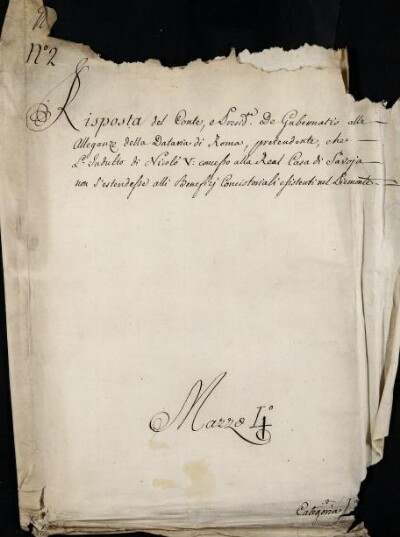 N.º 2
Risposta del Conte, e Presid.e De Gubernatis alle
Alleganze della Dataria di Roma, pretendente, che
L'Indulto di Nicolò V. concesso alla Real Casa di Savoja
non s'estendesse alli Benefizj Concistoriali esistenti nel Piemonte
Mazzo 1.º
Categoria 1.